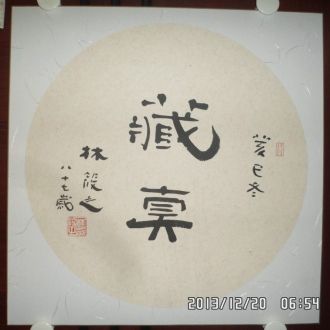 癸巳冬
藏
真
林筱之
八十七歲
2013/12/20 06:54